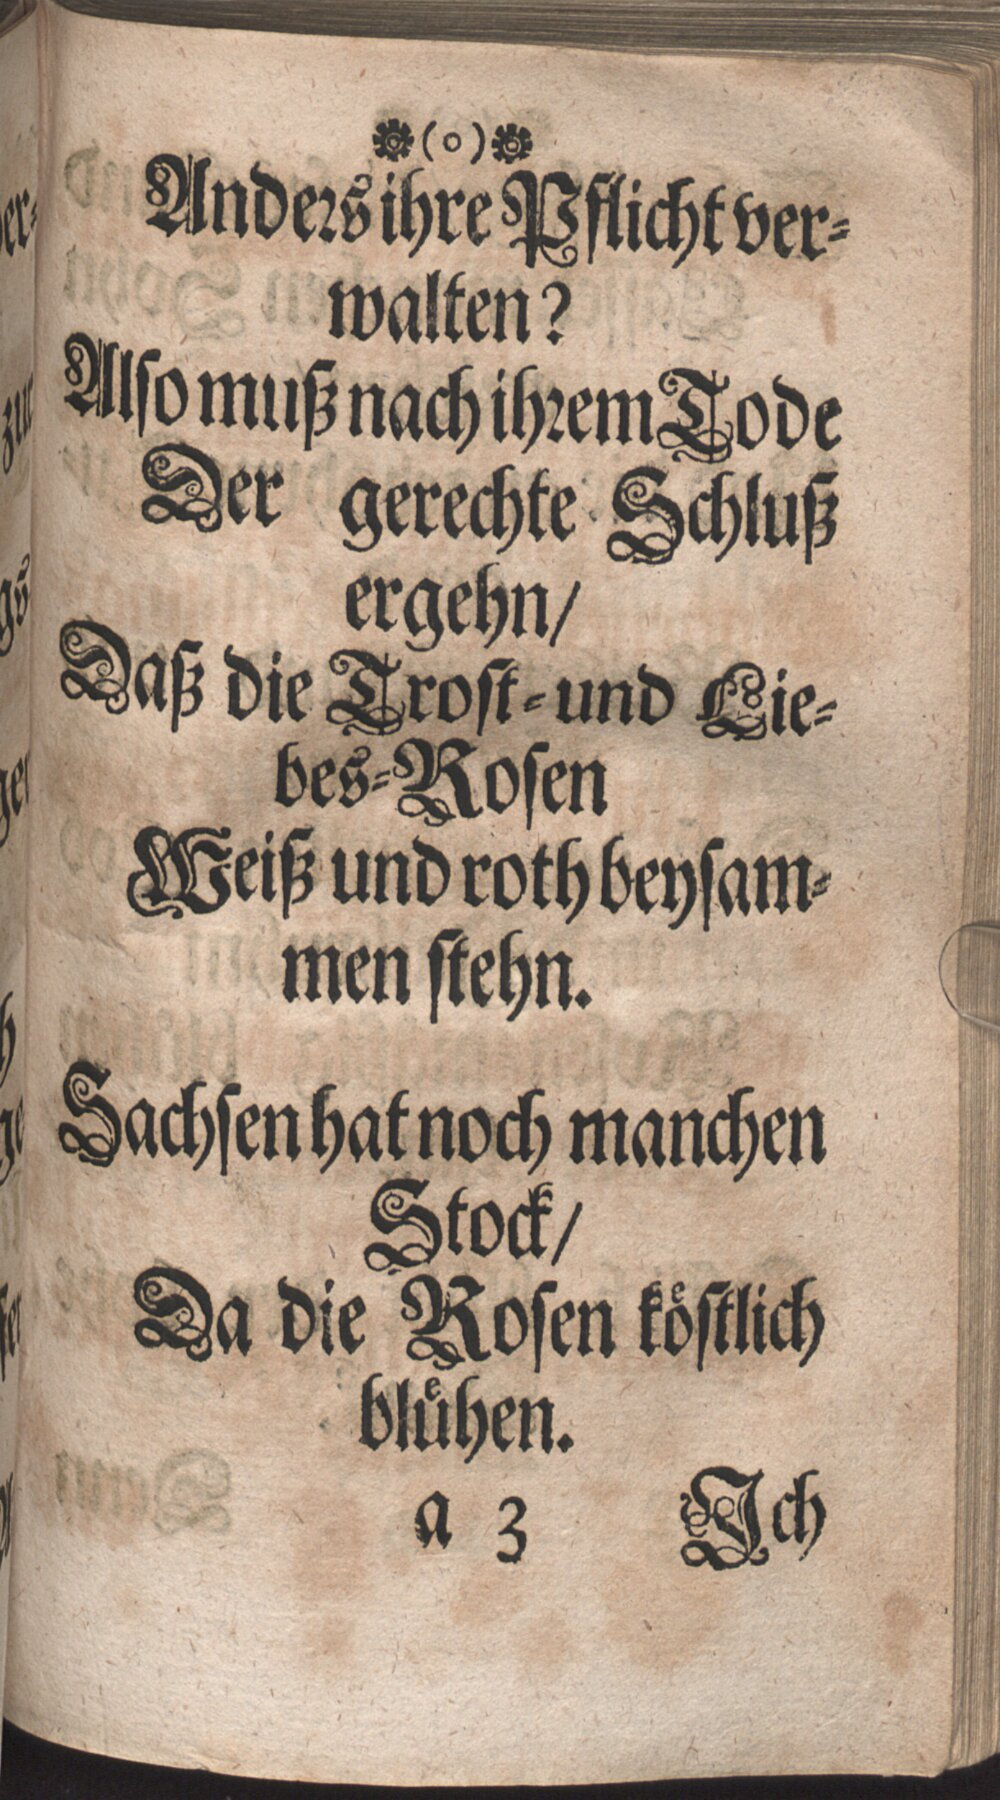 (o)
Anders ihre Pflicht ver-
walten?
Also muß nach ihrem Tode
Der gerechte Schluß
ergehn/
Daß die Trost- und Lie-
bes-Rosen
Weiß und roth beysam-
men stehn.
Sachsen hat noch manchen
Stock/
Da die Rosen köstlich
blühen.
a 3 Ich